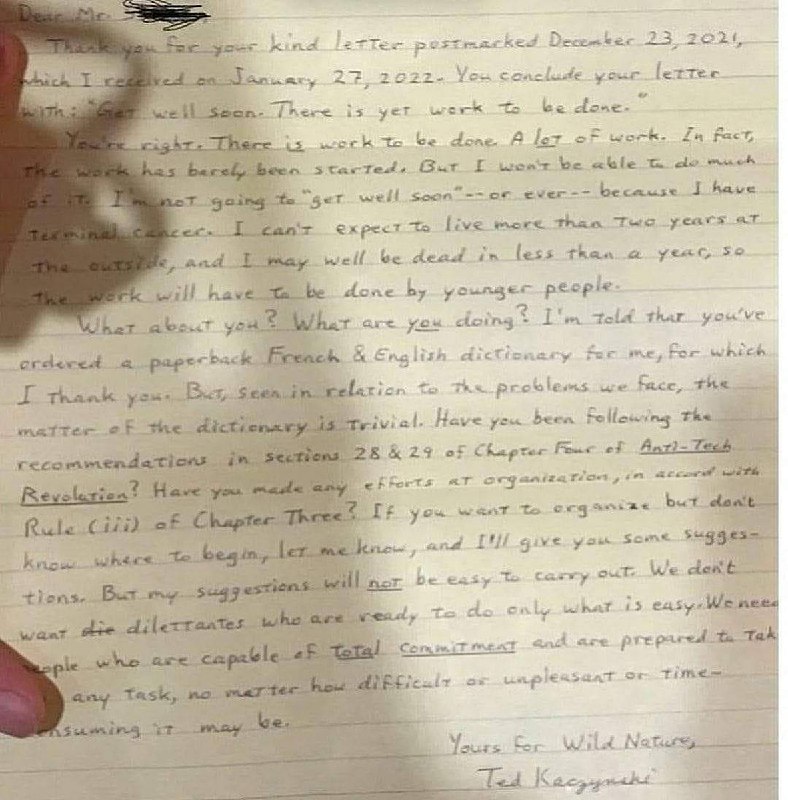 Dear Mr.
Thank you for your kind letter postmarked December 23, 2021,
which I received on January 27, 2022. You conclude your letter
with: "Get well soon. There is yet work to be done."
You're right. There is work to be done. A lot of work. In fact,
the work has barely been started. But I won't be able to do much
of it. I'm not going to "get well soon"--or ever--because I have
terminal cancer. I can't expect to live more than two years at
the outside, and I may well be dead in less than a year, so
the work will have to be done by younger people.
What about you? What are you doing? I'm told that you've
ordered a paperback French & English dictionary for me, for which
I thank you. But, seen in relation to the problems we face, the
matter of the dictionary is trivial. Have you been following the
recommendations in sections 28 & 29 of Chapter Four of Anti-Tech
Revolution? Have you made any efforts at organization, in accord with
Rule (iii) of Chapter Three? If you want to organize but don't
know where to begin, let me know, and I'll give you some sugges-
tions. But my suggestions will not be easy to carry out. We don't
want die dilettantes who are ready to do only what is easy. We need
people who are capable of total commitment and are prepared to tak
any task, no matter how difficult or unpleasant or time-
onsuming it may be.
Yours for Wild Nature,
Ted Kaczynski